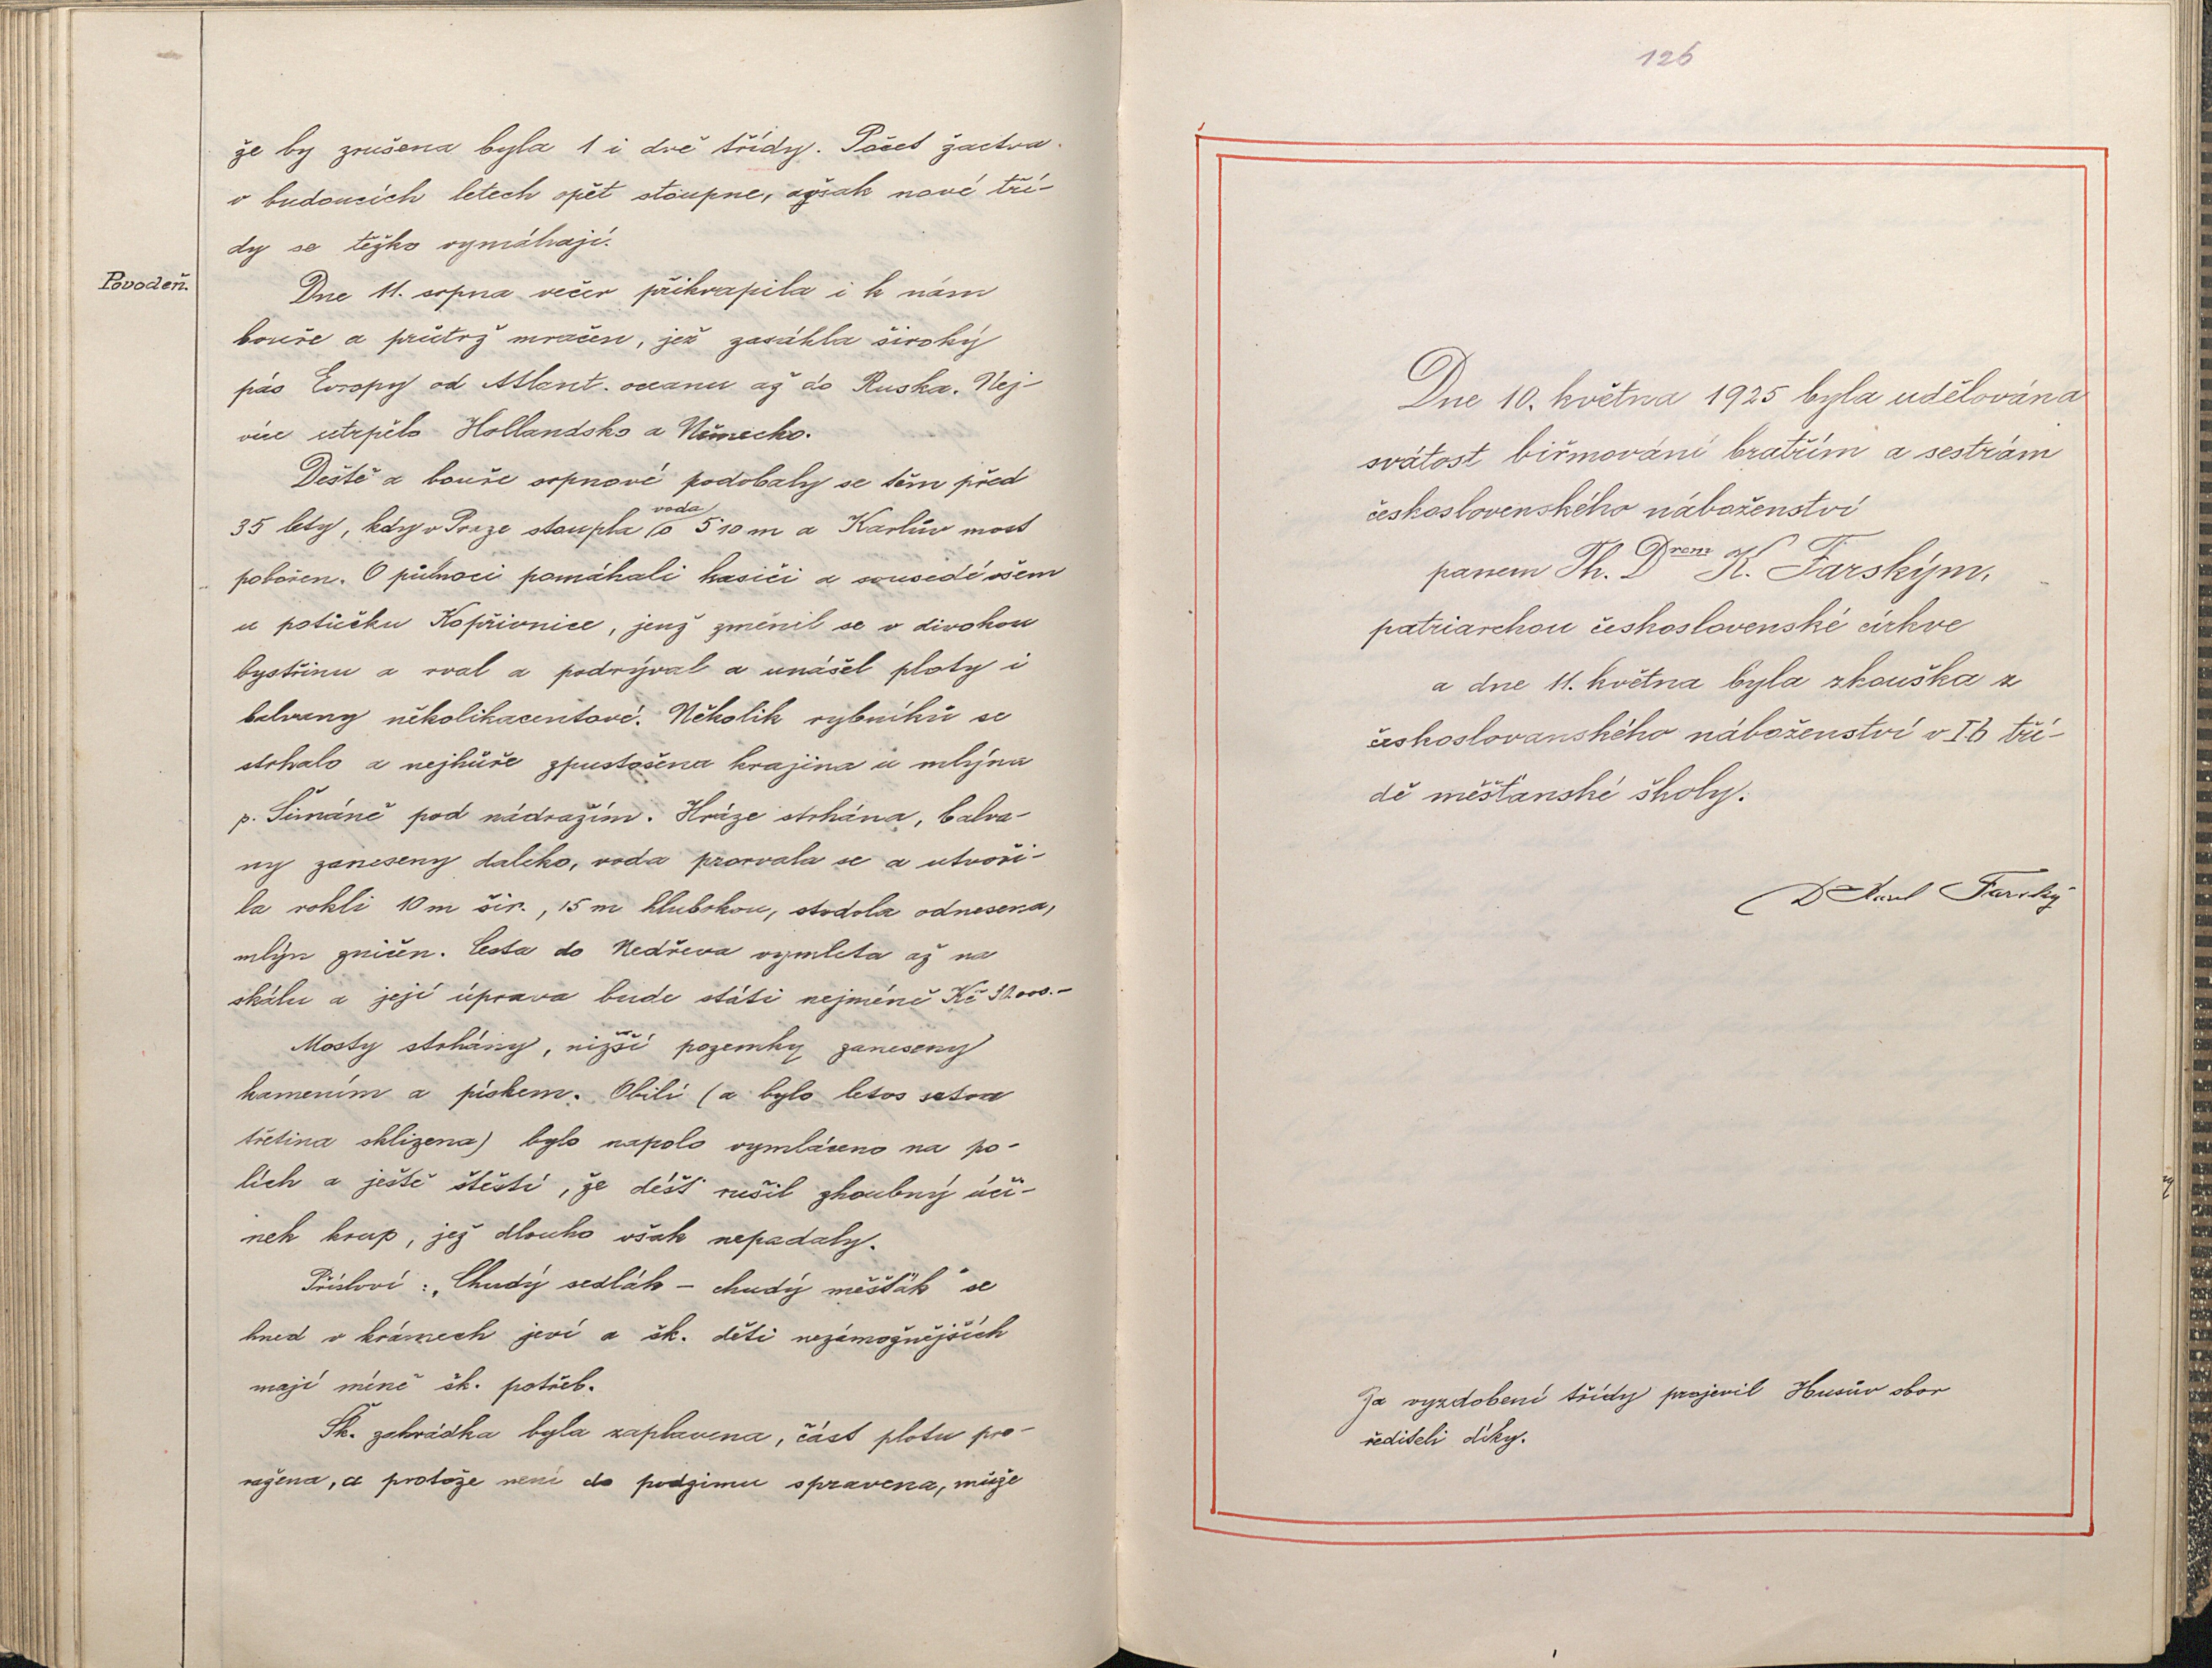 že by zrušena byla 1 i dvě třídy. Počet žactva
v budoucích letech opět stoupne, avšak nové tří-
dy se těžko vymáhají.
Povodeň.
Dne 11. srpna večer přikvapila i k nám
bouře a průtrž mračen, jež zasáhla široký
pás Evropy od Atlant. oceanu až do Ruska. Nej-
více utrpělo Hollandsko a Německo.
Deště a bouře srpnové podobaly se těm před
voda
35 lety, kdy v Praze stoupla o 5·10 m a Karlův most
pobořen. O půlnoci pomáhali hasiči a sousedé všem
u potůčku Kopřivnice, jenž změnil se v divokou
bystřinu a rval a podrýval a unášel ploty i
balvany několikacentové. Několik rybníků se
strhalo a nejhůře zpustošena krajina u mlýna
p. Šimáně pod nádražím. Hráze strhána, balva-
ny zaneseny daleko, voda prorvala se a utvoři-
la rokli 10 m šir., 15 m hlubokou, stodola odnesena,
mlýn zničen. Cesta do Nedřeva vymleta až na
skálu a její úprava bude státi nejméně Kč 30.000.-
Mosty strhány, nižší pozemky zaneseny
kamením a pískem. Obilí (a bylo letos sotva
třetina sklizena) bylo napolo vymláceno na po-
lích a ještě štěstí, že déšť rušil zhoubný úči-
nek krup, jež dlouho však nepadaly.
Přísloví: „Chudý sedlák - chudý měšťák" se
hned v krámech jeví a šk. děti nezámožnějších
mají méně šk. potřeb.
Šk. zahrádka byla zaplavena, část plotu pro-
ražena, a protože není do podzimu spravena, může
126
Dne 10. května 1925 byla udělována
svátost biřmování bratřím a sestrám
československého náboženství
panem Th. Drem K. Farským,
patriarchou československé církve
a dne 11. května byla zkouška z
československého náboženství v I.b tří-
dě měšťanské školy.
Dr Karel Farský
Za vyzdobení třídy projevil Husův sbor
řediteli díky.